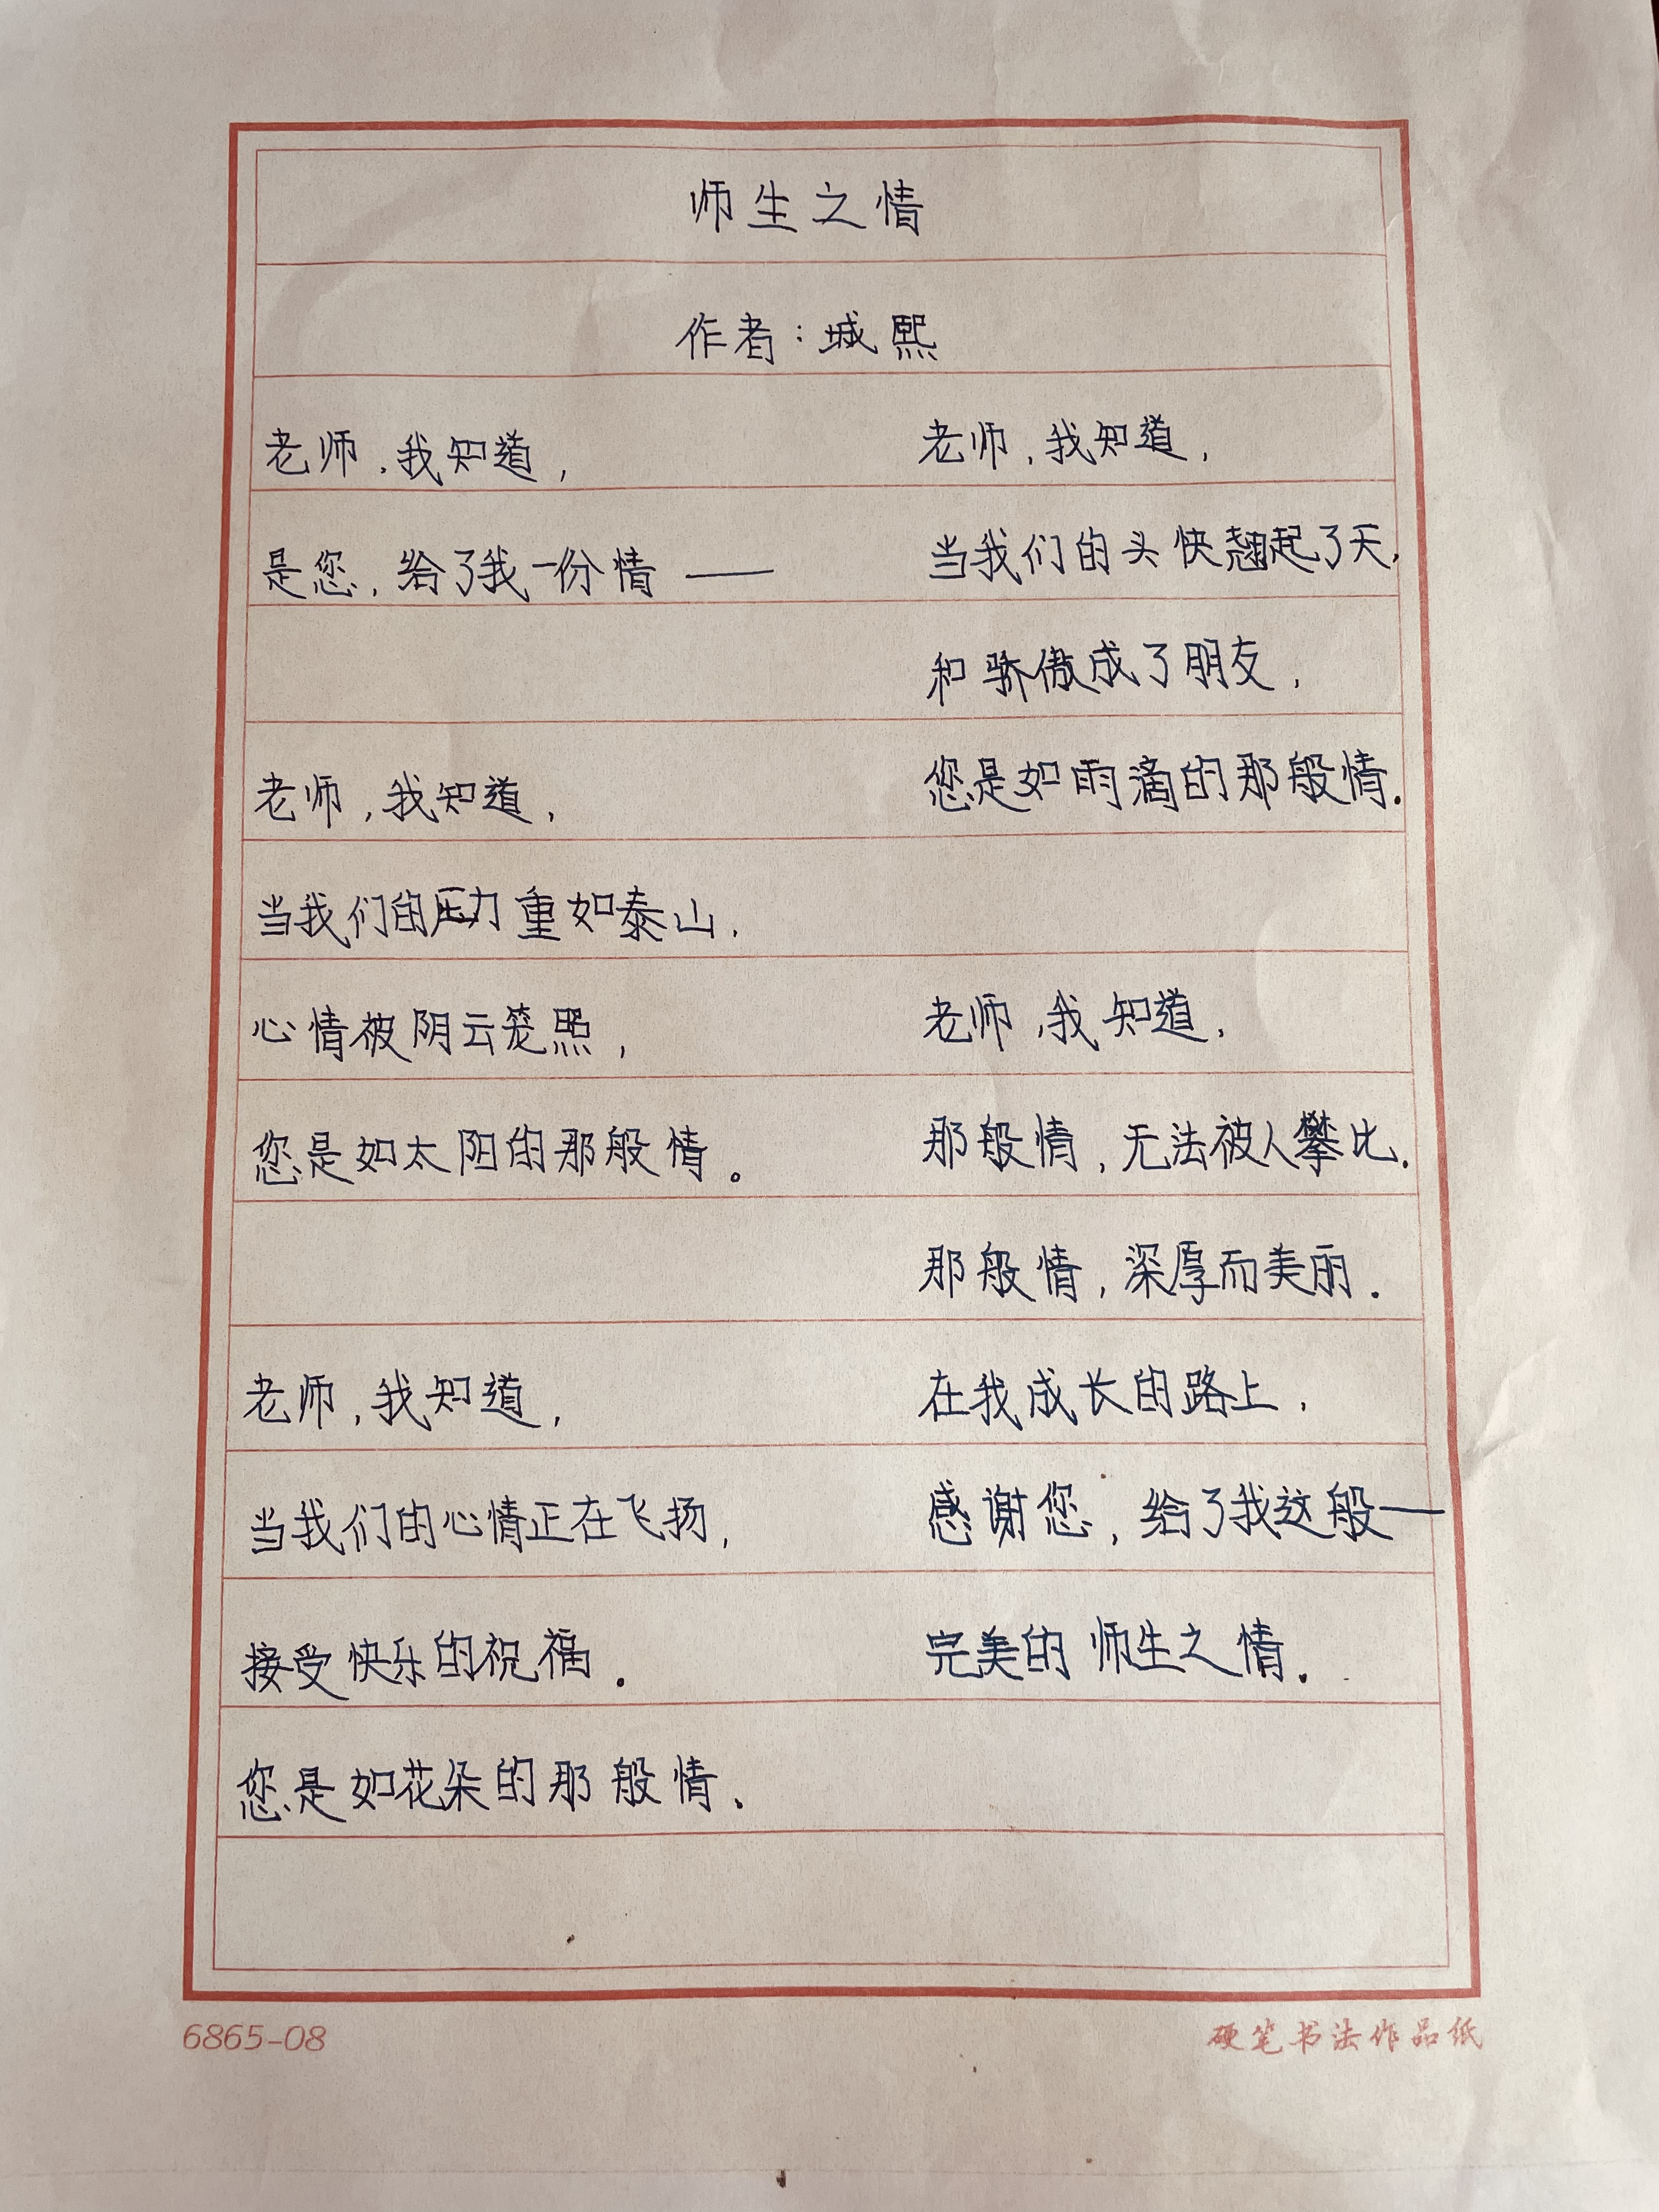 师生之情
作者：城熙
老师，我知道，
是您，给了我一份情——
老师，我知道，
当我们的压力重如泰山，
心情被阴云笼照，
您是如太阳的那般情。
老师，我知道，
当我们的心情正在飞扬，
接受快乐的祝福．
您是如花朵的那般情．
老师，我知道，
当我们的头快翘起了天，
和骄傲成了朋友，
您是如雨滴的那般情．
老师，我知道，
那般情，无法被人攀比．
那般情，深厚而美丽．
在我成长的路上，
感谢您，给了我这般——
完美的师生之情．
6865-08
硬笔书法作品纸